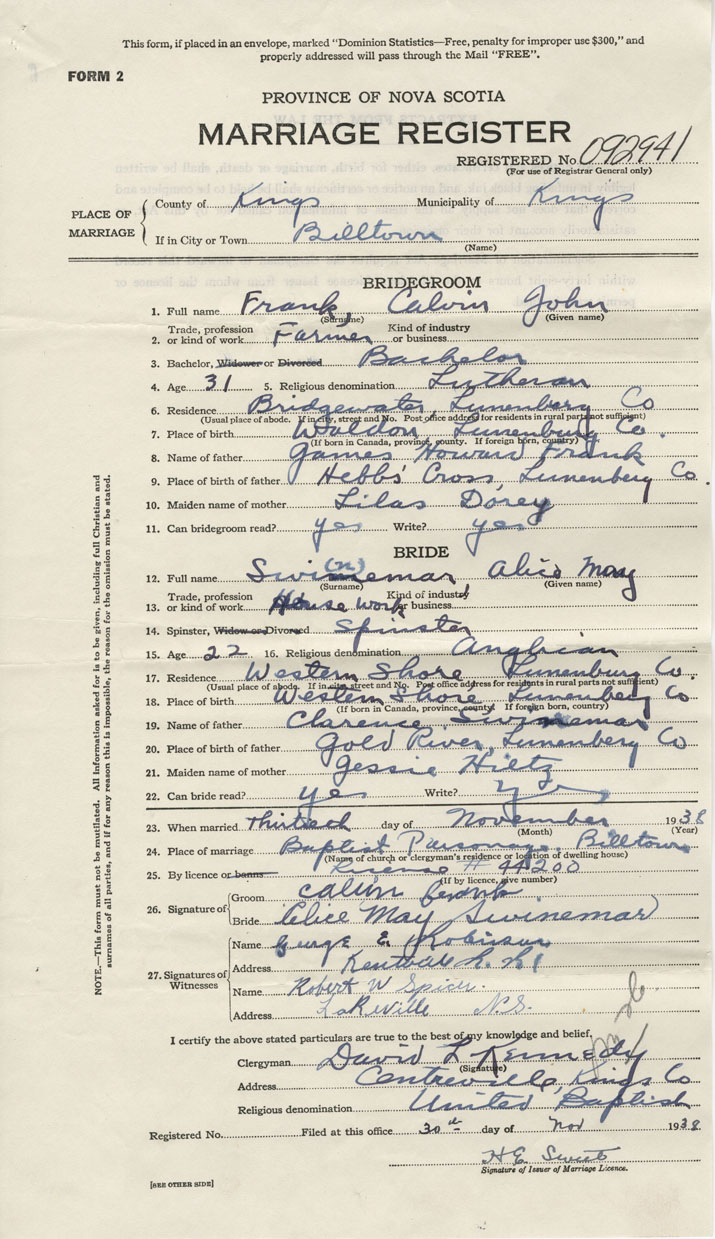 This form, if placed in an envelope, marked "Dominion Statistics—Free, penalty for improper use $300," and
properly addressed will pass through the Mail "FREE".
FORM 2
PROVINCE OF NOVA SCOTIA
MARRIAGE REGISTER
REGISTERED No. 092941
(For use of Registrar General only)
PLACE OF MARRIAGE
County of Kings Municipality of Kings
If in City or Town Billtown
(Name)
BRIDEGROOM
1. Full name Frank, Calvin John
(Surname) (Given name)
2. Trade, profession or kind of work Farmer Kind of industry or business
3. Bachelor, Widower or Divorced Bachelor
4. Age 31 5. Religious denomination Lutheran
6. Residence Bridgewater, Lunenberg Co
(Usual place of abode. If in city, street and No. Post office address for residents in rural parts not sufficient)
7. Place of birth Waldon Lunenburg Co.
(If born in Canada, province, county. If foreign born, country)
8. Name of father James Howard Frank
9. Place of birth of father Hebbs' Cross, Lunenberg Co.
10. Maiden name of mother Lilas Dorey
11. Can bridegroom read? yes Write? yes
BRIDE
12. Full name Swinnemar, Alice May
(n)
(Surname) (Given name)
13. Trade, profession or kind of work House work Kind of industry or business
14. Spinster, Widow or Divorced Spinster
15. Age 22 16. Religious denomination Anglican
17. Residence Western Shore Lunenburg Co.
(Usual place of abode. If in city, street and No. Post office address for residents in rural parts not sufficient)
18. Place of birth Western Shore Lunenberg Co
(If born in Canada, province, county. If foreign born, country)
19. Name of father Clarence Swinemar
20. Place of birth of father Gold River, Lunenberg Co
21. Maiden name of mother Jessie Hiltz
22. Can bride read? yes Write? yes
23. When married day of November 1938
(Month) (Year)
24. Place of marriage Baptist Parsonage, Billtown
(Name of church or clergyman's residence or location of dwelling house)
25. By licence or banns License #
(If by licence, give number)
26. Signature of
Groom Calvin Frank
Bride Alice May Swinemar
27. Signatures of Witnesses
Name George E Robinson
Address Kentville
Name Robert W Spicer
Address Lakeville N.S.
I certify the above stated particulars are true to the best of my knowledge and belief,
Clergyman David L Kennedy
(Signature)
Address Centreville, Kings Co
Religious denomination United Baptist
Registered No. Filed at this office 30th day of Nov 1938
H E
Signature of Issuer of Marriage Licence.
[SEE OTHER SIDE]
NOTE.—This form must not be mutilated. All information asked for is to be given, including full Christian and
surnames of all parties, and if for any reason this is impossible, the reason for the omission must be stated.